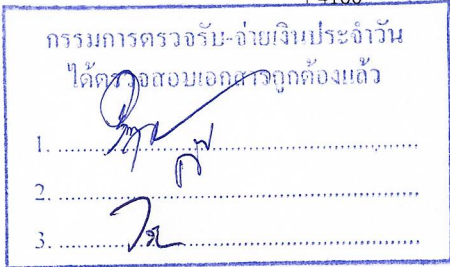 กรรมการตรวจรับ-จ่ายเงินประจำวัน
ได้ตรวจสอบเอกสารถูกต้องแล้ว
1. 
2. 
3.